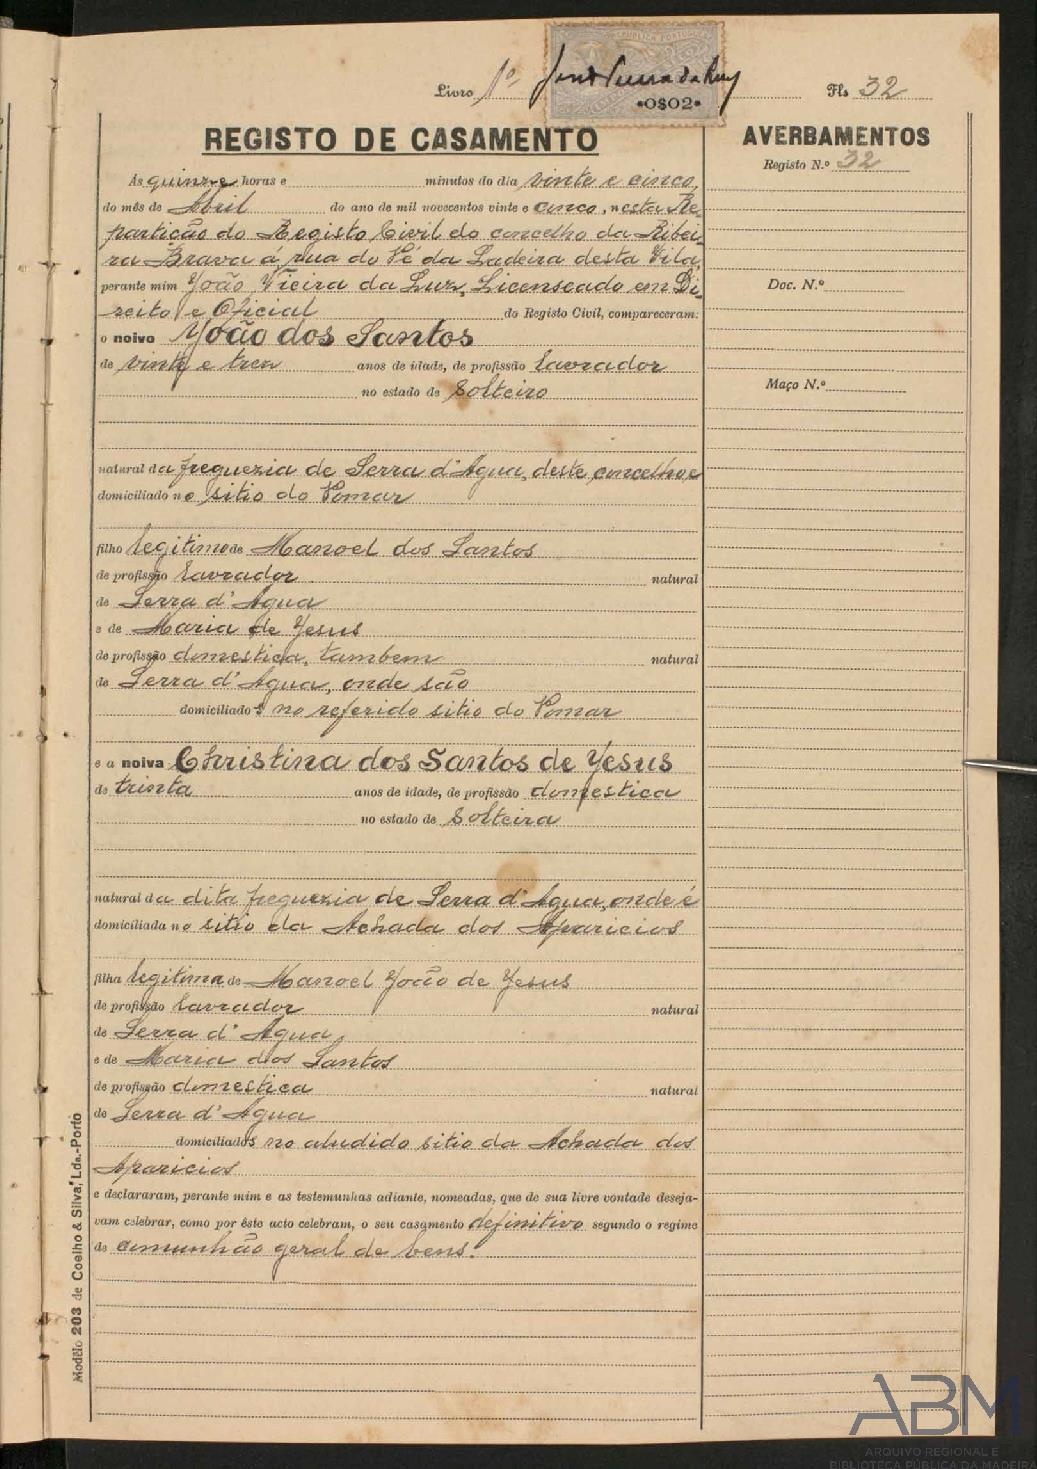 Livro 1º
REPUBLICA PORTUGUESA
•0$02•
Fls 32
REGISTO DE CASAMENTO
AVERBAMENTOS
Registo N.º 32
Às quinze horas e minutos do dia vinte e cinco,
do mês de Abril do ano de mil novecentos vinte e cinco, nesta Re-
partição do Registo Civil do concelho da Ribei-
ra Brava á rua do Pé da Ladeira desta Vila,
perante mim João Vieira da Luz, Licenseado em Di-
reito e Oficial do Registo Civil, compareceram:
Doc. N.º
o noivo João dos Santos
de vinte e tres anos de idade, de profissão lavrador
Maço N.º
no estado de Solteiro
natural da freguezia de Serra d'Agua, deste concelho e
domiciliado no sitio do Pomar
filho legitimo de Manoel dos Santos
de profissão lavrador natural
de Serra d'Agua
e de Maria de Jesus
de profissão domestica, tambem natural
de Serra d'Agua, onde são
domiciliados no referido sitio do Pomar
e a noiva Christina dos Santos de Jesus
de trinta anos de idade, de profissão domestica
no estado de Solteira
natural da dita freguezia de Serra d'Agua, onde é
domiciliada no sitio da Achada dos Aparicios
filha legitima de Manoel João de Jesus
de profissão lavrador natural
de Serra d'Agua
e de Maria dos Santos
de profissão domestica natural
de Serra d'Agua
domiciliados no aludido sitio da Achada dos
Aparicios
e declararam, perante mim e as testemunhas adiante, nomeadas, que de sua livre vontade deseja-
vam celebrar, como por êste acto celebram, o seu casamento definitivo segundo o regime
de comunhão geral de bens.
Modêlo 203 de Coelho & Silva, Lda.-Porto
ABM
ARQUIVO REGIONAL E
BIBLIOTECA PÚBLICA DA MADEIRA